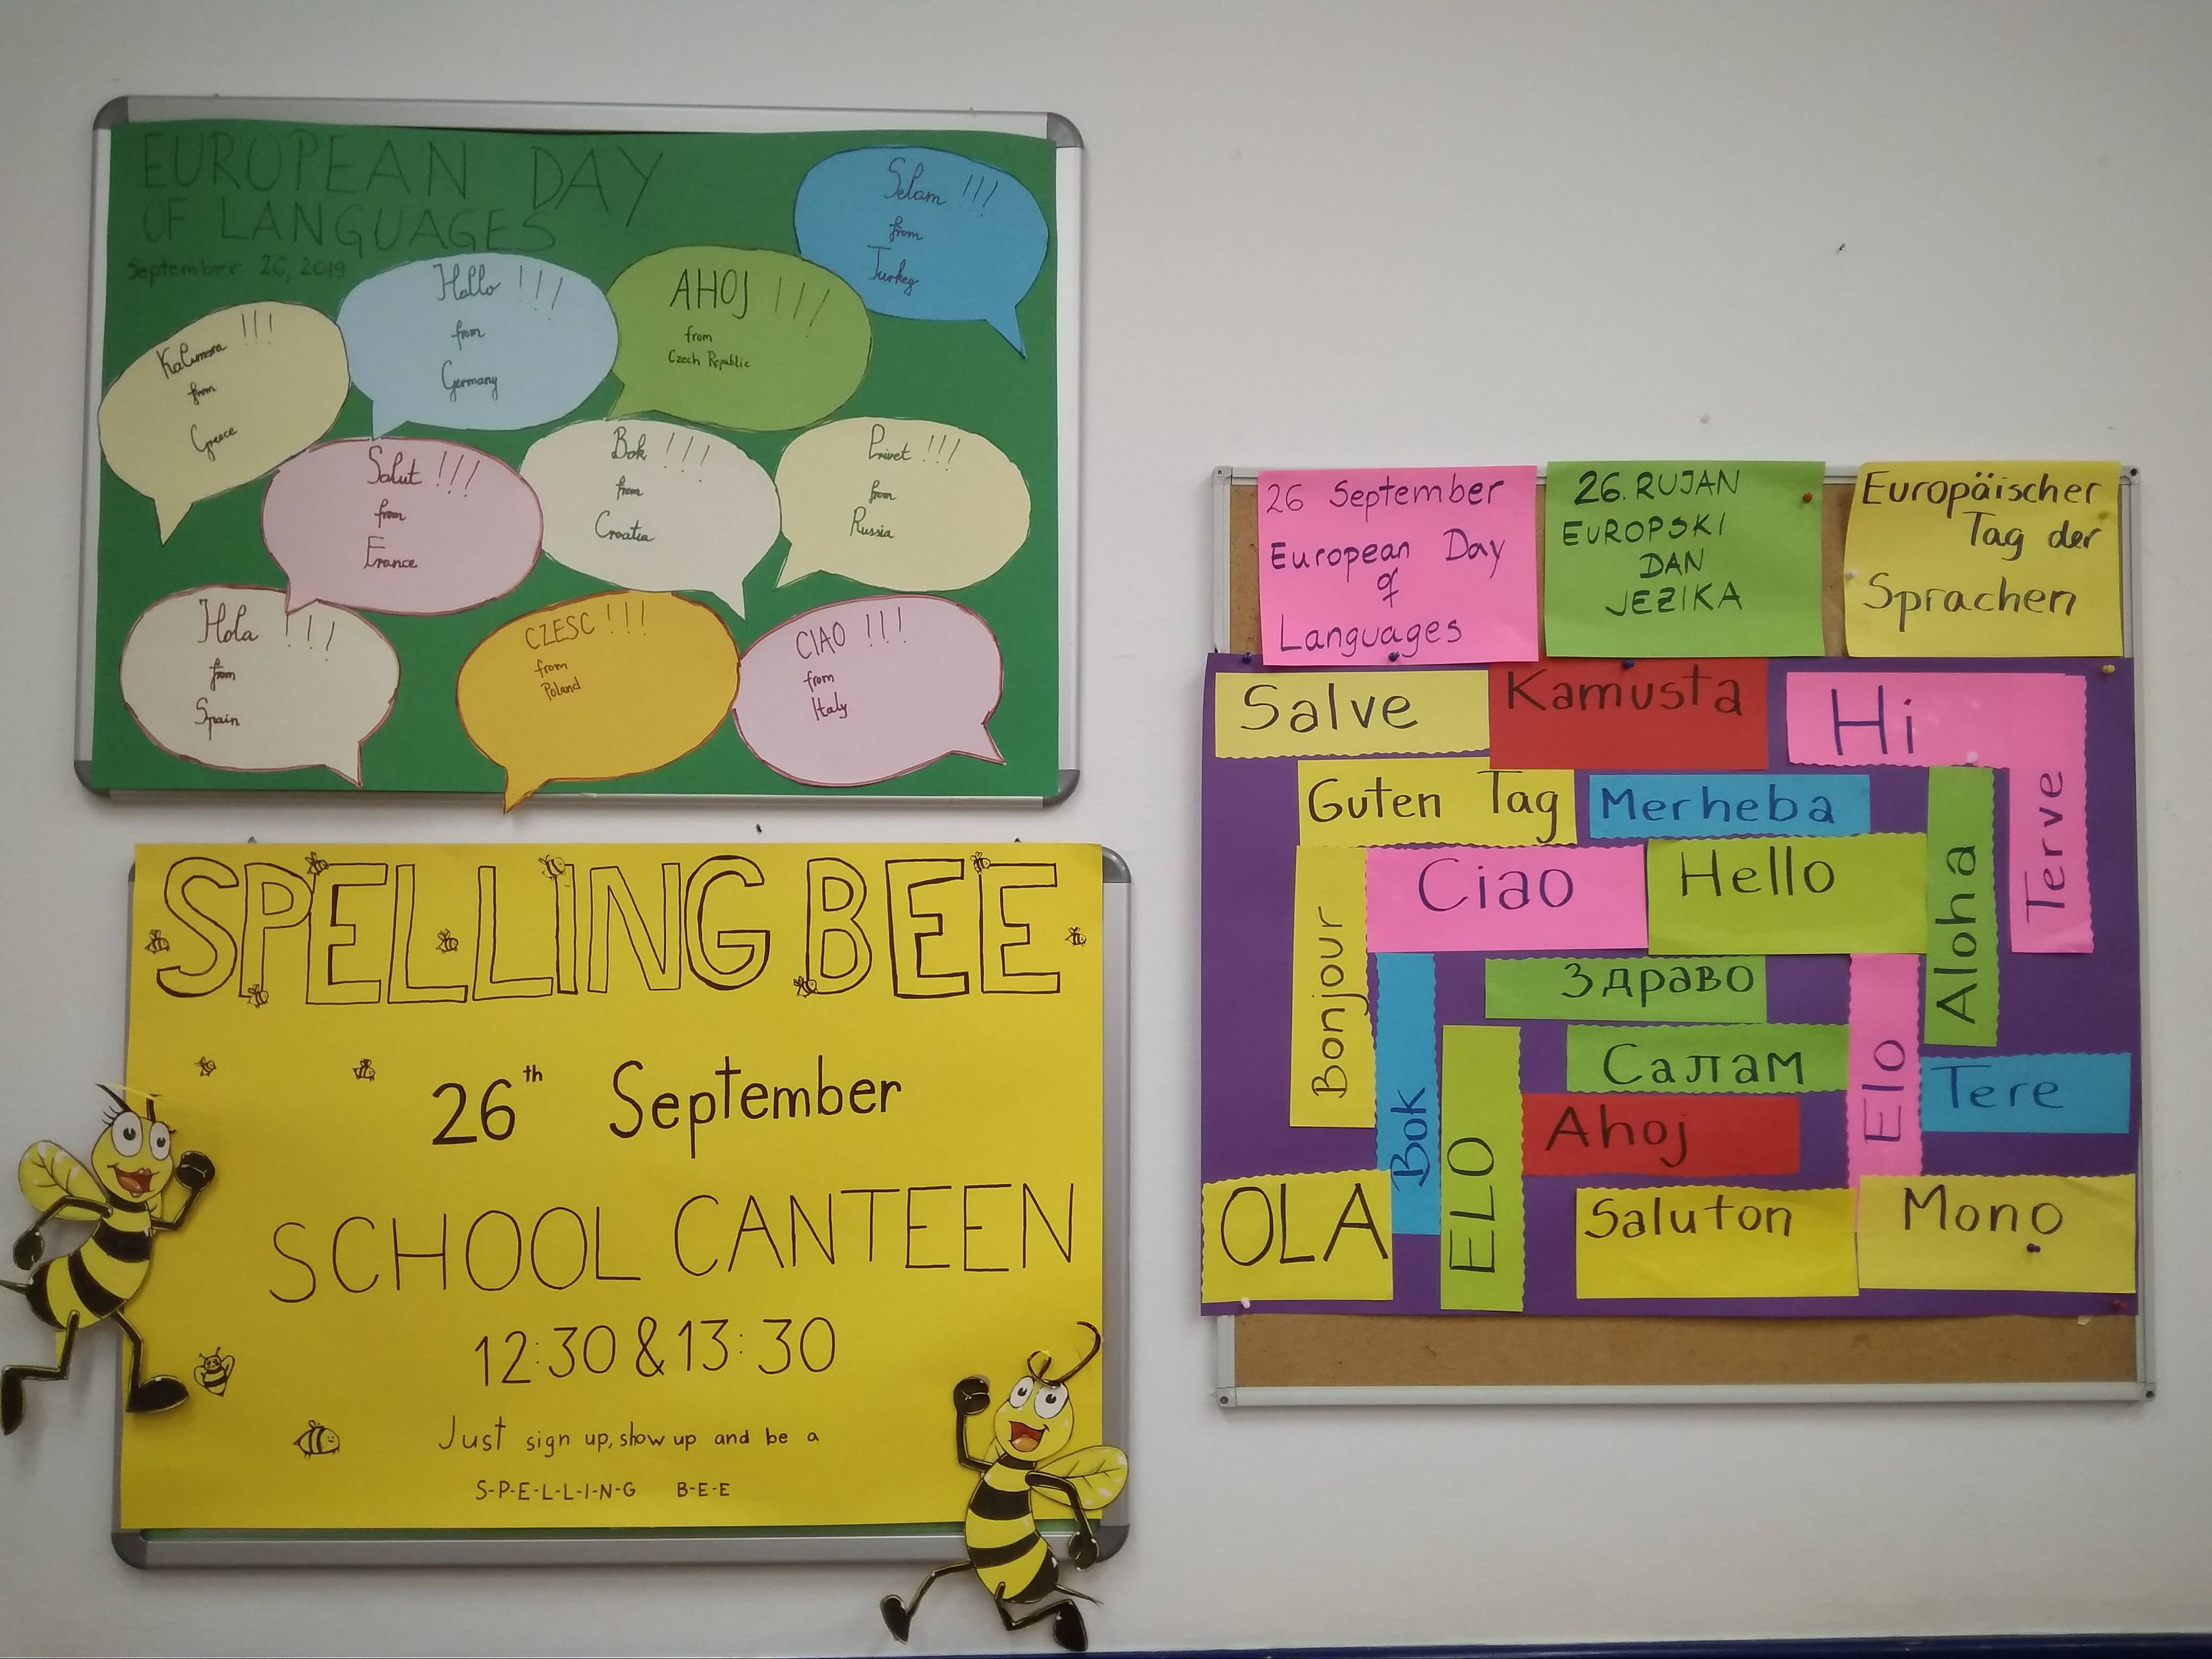 EUROPEAN DAY
OF LANGUAGES
September 26, 2019
Selam !!!
from
Turkey
Hallo !!!
from
Germany
AHOJ !!!
from
Czech Republic
Kalimera !!!
from
Greece
Salut !!!
from
France
Bok !!!
from
Croatia
Privet !!!
from
Russia
Hola !!!
from
Spain
CZESC !!!
from
Poland
CIAO !!!
from
Italy
SPELLING BEE
26th September
SCHOOL CANTEEN
12:30 & 13:30
Just sign up, show up and be a
S-P-E-L-L-I-N-G B-E-E
26 September
European Day
of
Languages
26. RUJAN
EUROPSKI
DAN
JEZIKA
Europäischer
Tag der
Sprachen
Salve
Kamusta
Hi
Terve
Guten Tag
Merheba
Aloha
Bonjour
Ciao
Hello
Bok
Здраво
Elo
ELO
Салам
Tere
Ahoj
OLA
Saluton
Mono